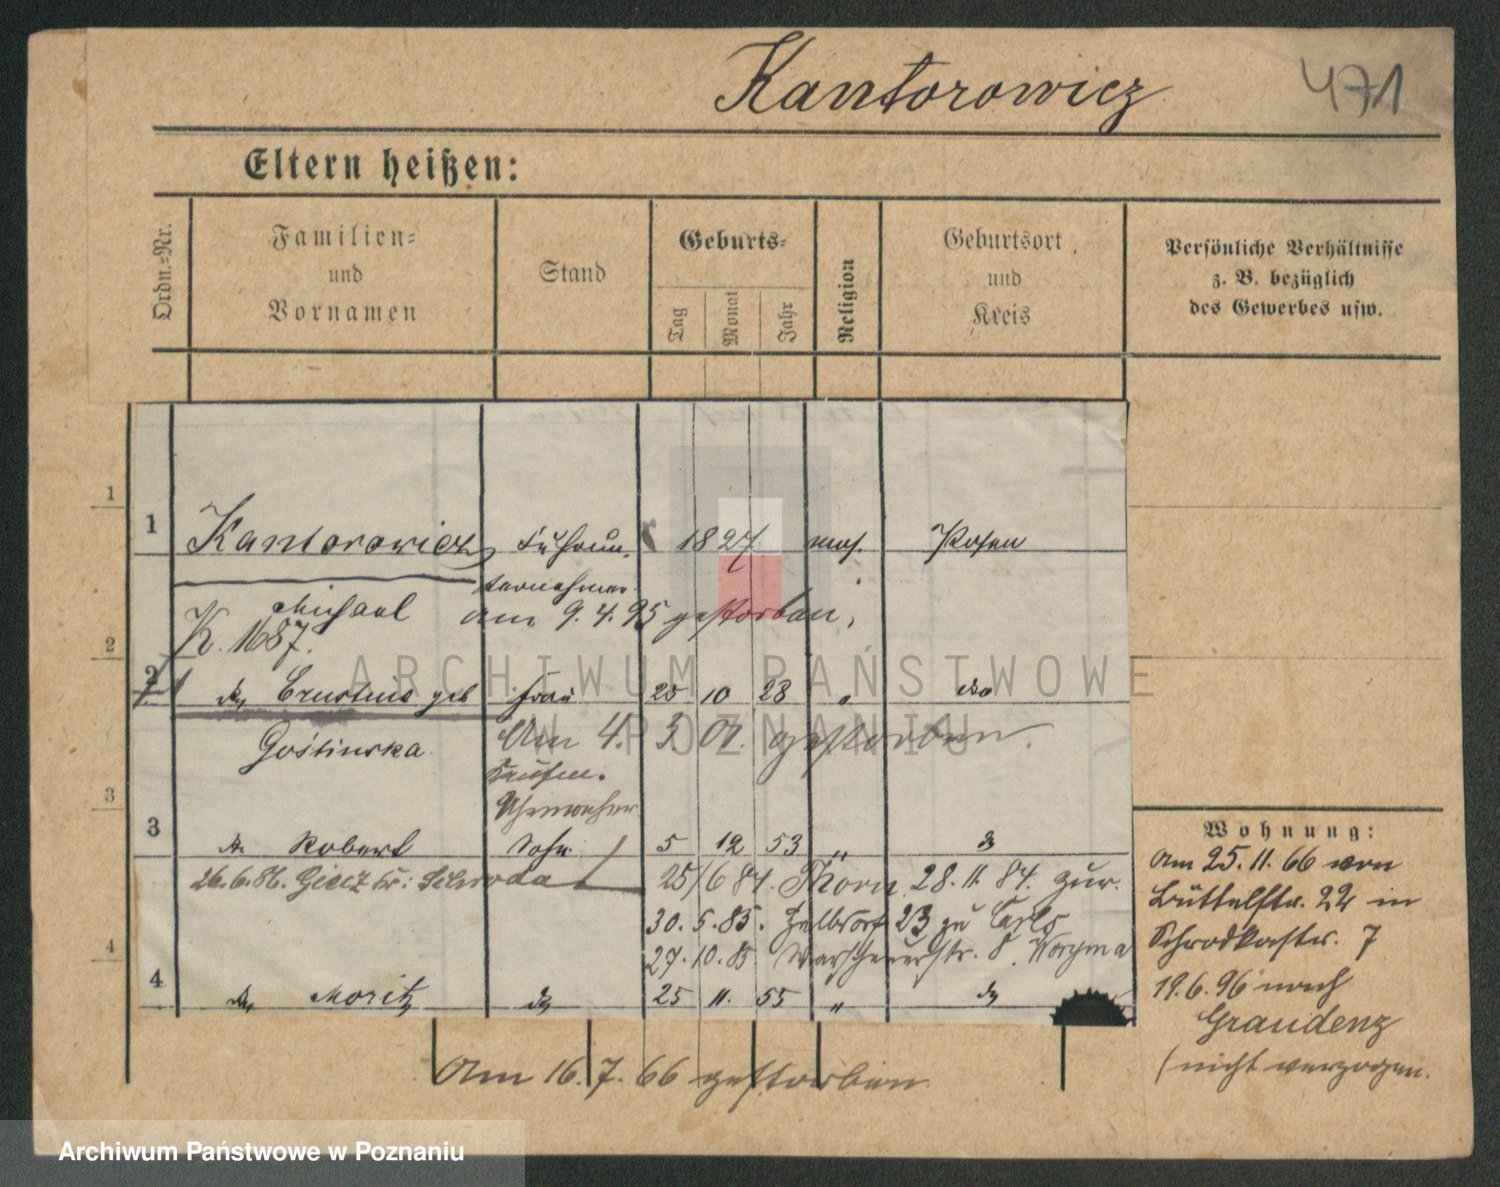 Kantorowicz 471
Eltern heißen:
Ordn.-Nr.
Familien-
und
Vornamen
Stand
Geburts-
Tag
Monat
Jahr
Religion
Geburtsort
und
Kreis
Persönliche Verhältnisse
z. B. bezüglich
des Gewerbes usw.
1
1 Kantorowicz, Fuhrun- 1827 mos. Posen
ternehmer
Michael am 9. 4. 95 gestorben,
K. 1687.
2
2 Ernestine geb Frau 25 10 28 " do
Gośtinska Am 4. 3 01. gestorben.
Kaufm.
Uhrmacher
3
3 Robert Sohn 5 12 53 "
26.6.86. Giecz Kr: Schroda 25/6 84. Thorn 28. 11. 84. zur.
30. 5. 85. 23 zu
27. 10. 85
4
4 Moritz 25 11. 55 "
Am 16. 7. 66 gestorben
Wohnung:
Am 25. 11. 66 von
Büttelstr. 22 in
Schrodkastr. 7
19. 6. 96 nach
Graudenz
(nicht verzogen.
ARCHIWUM PAŃSTWOWE
W POZNANIU
Archiwum Państwowe w Poznaniu